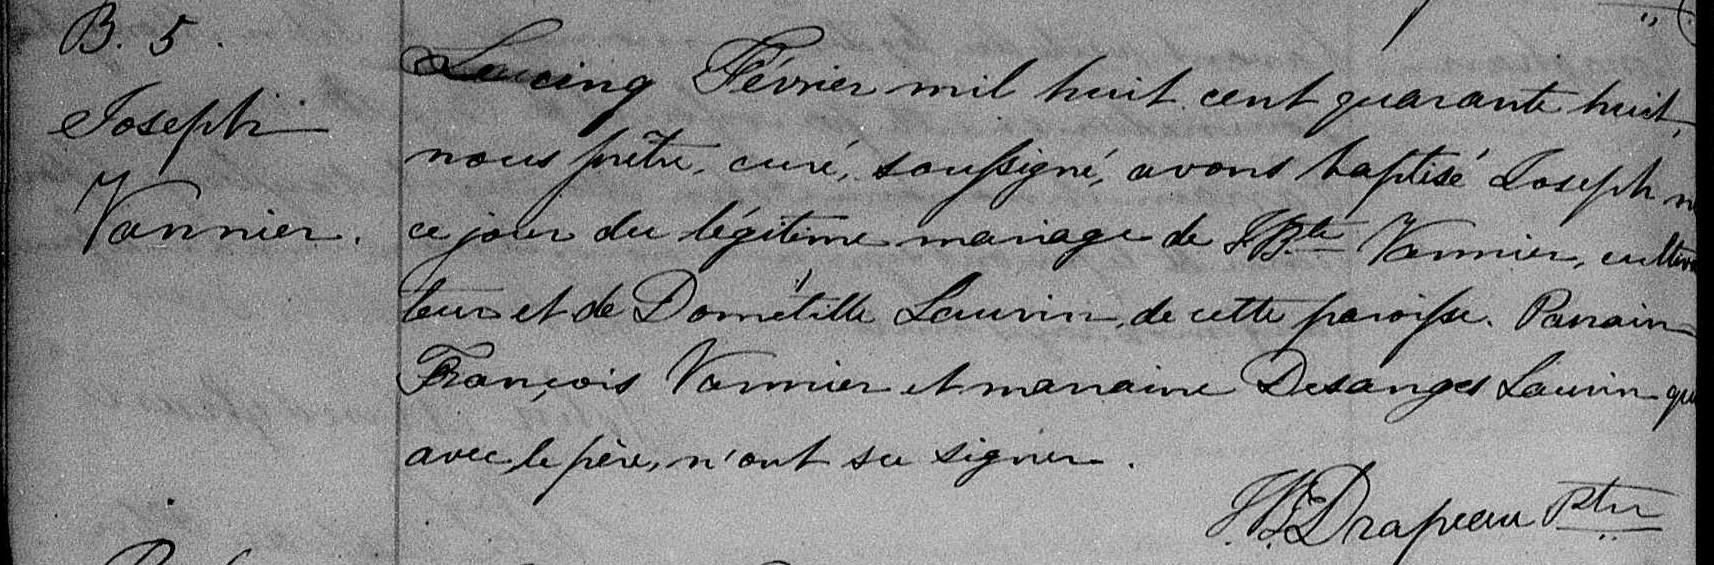 B. 5.
Joseph
Vannier.
Le cinq Février mil huit cent quarante huit,
nous prêtre, curé, soussigné, avons baptisé Joseph n
ce jour du légitime mariage de J Bte Vannier, cultiva
teur et de Dométille Laurin, de cette paroisse. Parrain
François Vannier et marraine Desanges Laurin qui
avec le père, n'ont su signer.
J. B. Drapeau Ptre